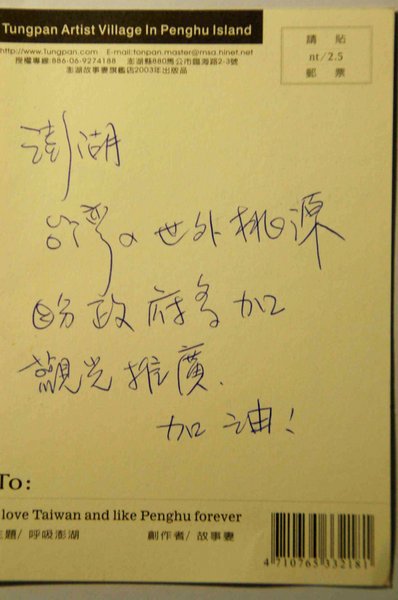 Tungpan Artist Village In Penghu Island
http://www.Tungpan.com E-mail:tonpan.master@msa.hinet.net
授權專線:886-06-9274188 澎湖縣880馬公市臨海路2-3號
澎湖故事妻旗艦店2003年出版品
請貼
nt/2.5
郵票
澎湖
台灣の世外桃源
盼政府多加
觀光推廣.
加油!
To:
love Taiwan and like Penghu forever
主題/ 呼吸澎湖
創作者/ 故事妻
4 710765 332181